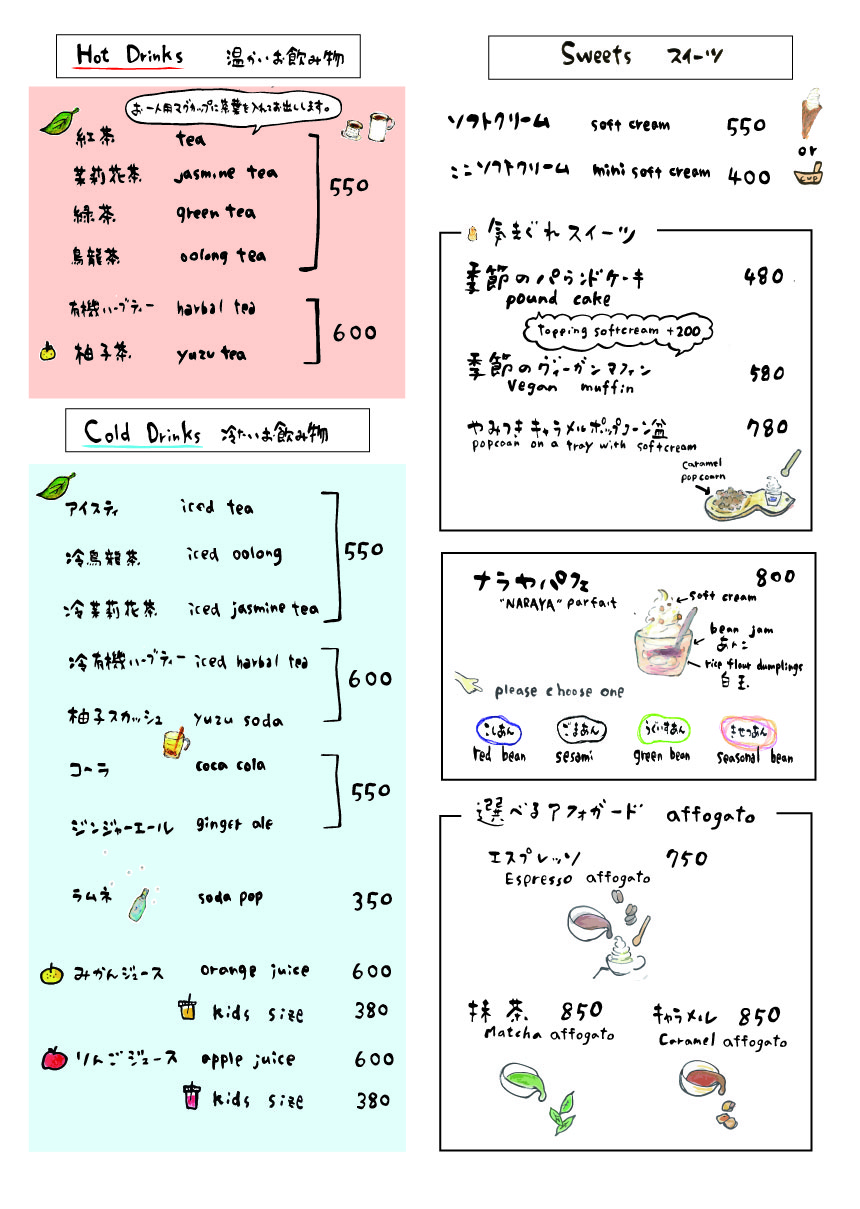 Hot Drinks 温かいお飲み物
お一人用マグカップに茶葉を入れてお出しします。
紅茶 tea
茉莉花茶 jasmine tea
550
緑茶 green tea
烏龍茶 oolong tea
有機ハーブティー harbal tea
600
柚子茶 yuzu tea
Cold Drinks 冷たいお飲み物
アイスティ iced tea
冷烏龍茶 iced oolong
550
冷茉莉花茶 iced jasmine tea
冷有機ハーブティー iced harbal tea
600
柚子スカッシュ yuzu soda
コーラ coca cola
550
ジンジャーエール ginger ale
ラムネ soda pop 350
みかんジュース orange juice 600
kids size 380
りんごジュース apple juice 600
kids size 380
Sweets スイーツ
ソフトクリーム soft cream 550
or
ミニソフトクリーム mini soft cream 400
cup
気まぐれスイーツ
季節のパウンドケーキ 480
pound cake
topping softcream +200
季節のヴィーガンマフィン 580
Vegan muffin
やみつきキャラメルポップコーン盆 780
popcoan on a tray with softcream
caramel
popcoarn
ナラヤパフェ 800
"NARAYA" parfait
soft cream
bean jam
あんこ
rice flour dumplings
白玉
please choose one
こしあん ごまあん うぐいすあん きせつあん
red bean sesami green bean seasonal bean
選べるアフォガード affogato
エスプレッソ 750
Espresso affogato
抹茶 850
Matcha affogato
キャラメル 850
Caramel affogato